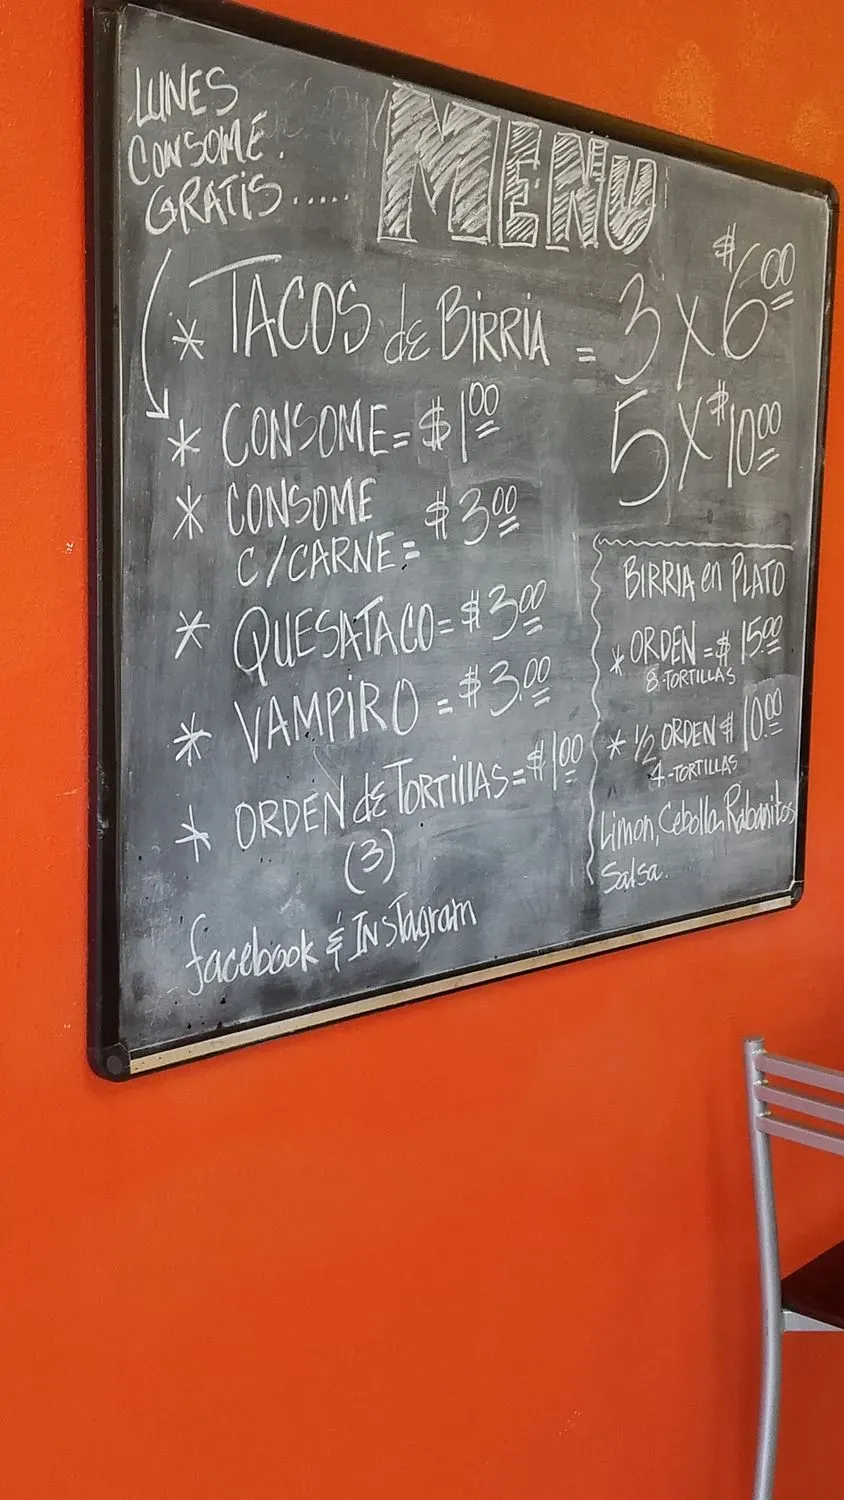 LUNES
CONSOME.
GRATIS.....
MENU
* TACOS de BIRRIA = 3 x $6.00
5 x $10.00
* CONSOME = $1.00
* CONSOME
C/CARNE = $3.00
* QUESATACO = $3.00
* VAMPIRO = $3.00
* ORDEN de TORTILLAS = $1.00
(3)
facebook & INsTagram
BIRRIA en PLATO
* ORDEN = $15.00
8-TORTILLAS
* 1/2 ORDEN $10.00
4-TORTILLAS
Limon, Cebolla, Rabanitos
Salsa.